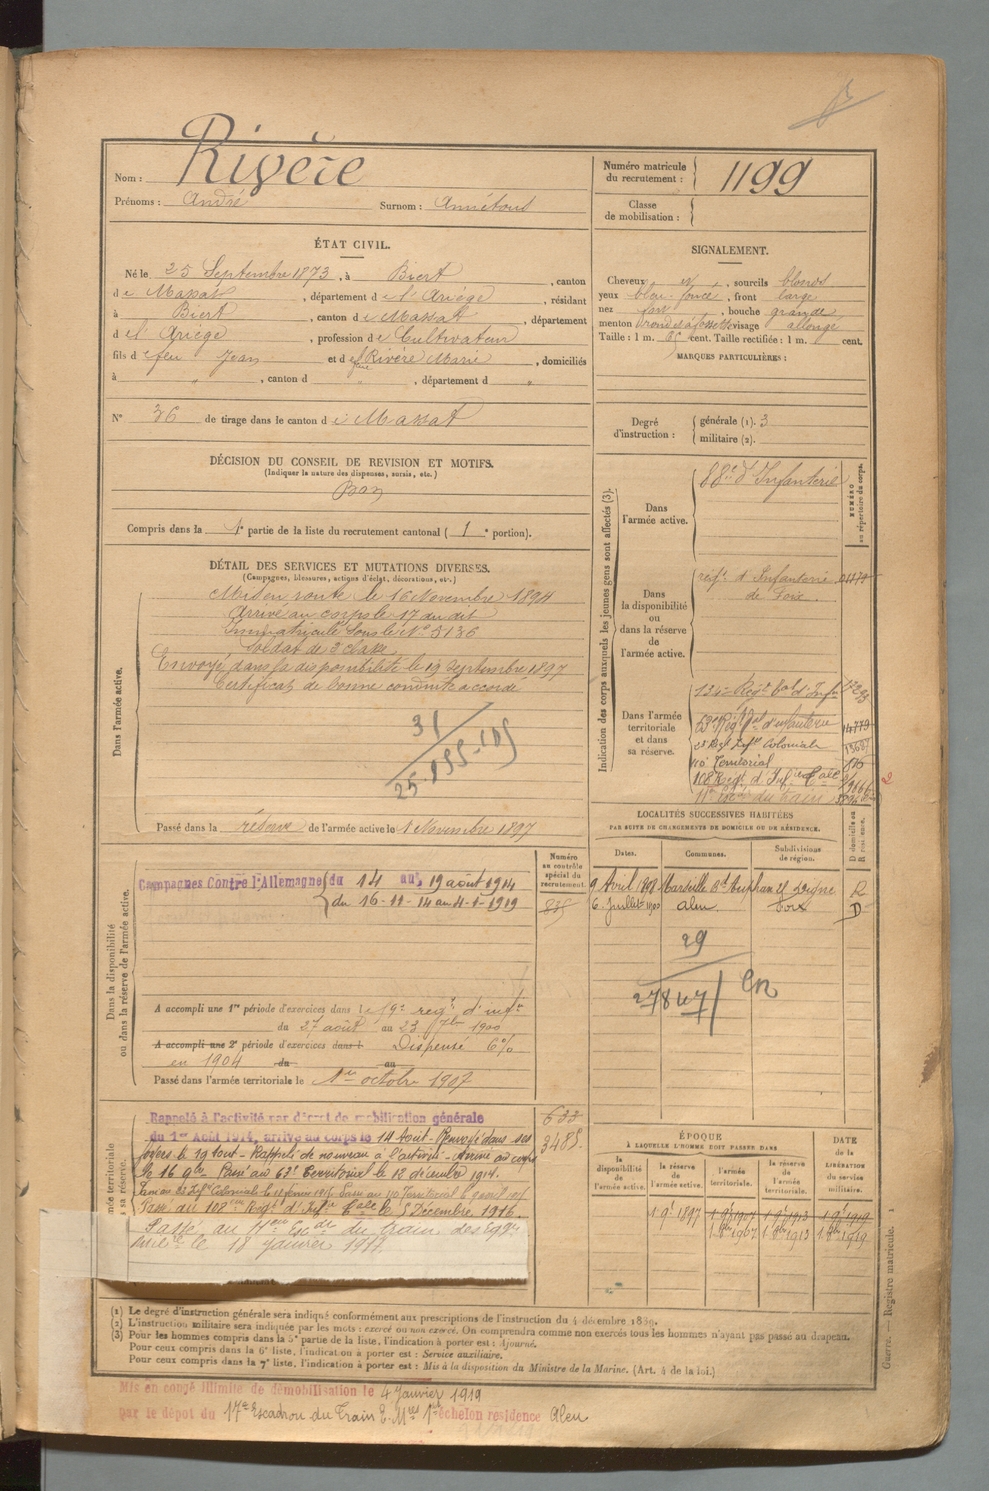 Nom : Rivère
Prénoms : André Surnom : Annétout
Numéro matricule du recrutement : 1199
Classe de mobilisation :
ÉTAT CIVIL.
Né le 25 Septembre 1873, à Biert, canton
de Massat, département de l'Ariège, résidant
à Biert, canton de Massat, département
de l'Ariège, profession de Cultivateur
fils de feu Jean et de Rivère Marie, domiciliés
à " , canton d " , département d "
N° 36 de tirage dans le canton de Massat
DÉCISION DU CONSEIL DE REVISION ET MOTIFS.
(Indiquer la nature des dispenses, sursis, etc.)
Bon
Compris dans la 1e partie de la liste du recrutement cantonal ( 1 e portion).
DÉTAIL DES SERVICES ET MUTATIONS DIVERSES.
(Campagnes, blessures, actions d'éclat, décorations, etc.)
Dans l'armée active.
Mis en route le 16 Novembre 1894
Arrivé au corps le 17 du dit
Immatriculé sous le N° 5136
Soldat de 2 classe
Envoyé dans la disponibilité le 19 Septembre 1897
Certificat de bonne conduite accordé
31
Passé dans la réserve de l'armée active le 1 Novembre 1897
SIGNALEMENT.
Cheveux et , sourcils blonds
yeux bleu foncé, front large
nez , bouche grande
menton rond et à fossette visage allongé
Taille : 1 m. 65 cent. Taille rectifiée : 1 m. cent.
MARQUES PARTICULIÈRES :
Degré d'instruction : générale (1). 3
militaire (2).
Indication des corps auxquels les jeunes gens sont affectés (3).
NUMÉRO au répertoire du corps.
Dans l'armée active.
88e d'Infanterie
Dans la disponibilité ou dans la réserve de l'armée active.
régt d'Infanterie
de Foix.
Dans l'armée territoriale et dans sa réserve.
63e Régt d'infanterie 14779
Infie Coloniale
110e Territorial
108 Régt d'Infie Cale
du train
2
LOCALITÉS SUCCESSIVES HABITÉES
PAR SUITE DE CHANGEMENTS DE DOMICILE OU DE RÉSIDENCE.
Dates. Communes. Subdivisions de région. D domicile ou R résidence.
9 Avril Marseille R
6 Juillet 1900 Aleu Foix D
29
27847
Numéro au contrôle spécial du recrutement.
Dans la disponibilité ou dans la réserve de l'armée active.
Campagnes Contre l'Allemagne du 14 au 19 août 1914
du 16-11-14 au 4-1-1919
A accompli une 1re période d'exercices dans le régt d'infie
du 27 août au 23 7bre 1900
A accompli une 2e période d'exercices dans l Dispensé 6%
en 1904 du au
Passé dans l'armée territoriale le 1er octobre 1907
633
3485
Rappelé à l'activité par décret de mobilisation générale
du 1er Août 1914, arrivé au corps le 14 Août - Renvoyé dans ses
foyers le 19 Aout - Rappelé de nouveau à l'activité - Arrivé au corps
le 16 9bre - Passé au 63e Territorial le 12 décembre 1914.
Passé au Infie Coloniale le Passé au 110 Territorial le
Passé au 108ème Régt d'Infie Cale le 5 Décembre 1916.
Passé au Escon du train des Eqges
Milres le 18 janvier 1917.
ÉPOQUE
À LAQUELLE L'HOMME DOIT PASSER DANS
DATE DE LA LIBÉRATION DU SERVICE MILITAIRE.
la disponibilité de l'armée active. la réserve de l'armée active. l'armée territoriale. la réserve de l'armée territoriale.
1 9e 1897 1 9e 1907 1 9e 1913 1 9e 1919
1 8bre 1907 1 8bre 1913 1 8bre 1919
(1) Le degré d'instruction générale sera indiqué conformément aux prescriptions de l'instruction du 4 décembre 1889.
(2) L'instruction militaire sera indiquée par les mots : exercé ou non exercé. On comprendra comme non exercés tous les hommes n'ayant pas passé au drapeau.
(3) Pour les hommes compris dans la 5e partie de la liste, l'indication à porter est : Ajourné.
Pour ceux compris dans la 6e liste, l'indication à porter est : Service auxiliaire.
Pour ceux compris dans la 7e liste, l'indication à porter est : Mis à la disposition du Ministre de la Marine. (Art. 4 de la loi.)
Guerre. — Registre matricule. 1
Mis en congé illimité de démobilisation le 4 Janvier 1919
par le dépôt du 17e Escadron du Train E. Mres 1er échelon résidence Aleu